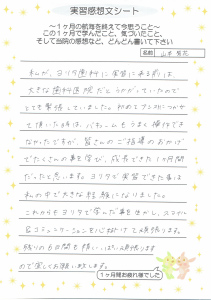 実習感想文シート
～1ヶ月の航海を終えて今思うこと～
この1ヶ月で学んだこと、気づいたこと、
そして当院の感想など、どんどん書いて下さい
名前
私が、ヨリタ歯科に実習に来る前は、
大きな歯科医院だと
とても緊張していました。初めてアシストにつかせ
て頂いた時は、バキュームもうまく操作でき
なかったですが、皆さんのご指導のおかげ
でたくさんの事を学び、成長できた1ヶ月間
だったと思います。ヨリタで実習できた事は
私の中で大きな経験になりました。
これからもヨリタで学んだ事を生かし、スマイル
＆コミュニケーションを心掛けて頑張ります。
残りの6日間も精いっぱい頑張ります
ので宜しくお願いします。
1ヶ月間お疲れ様でした